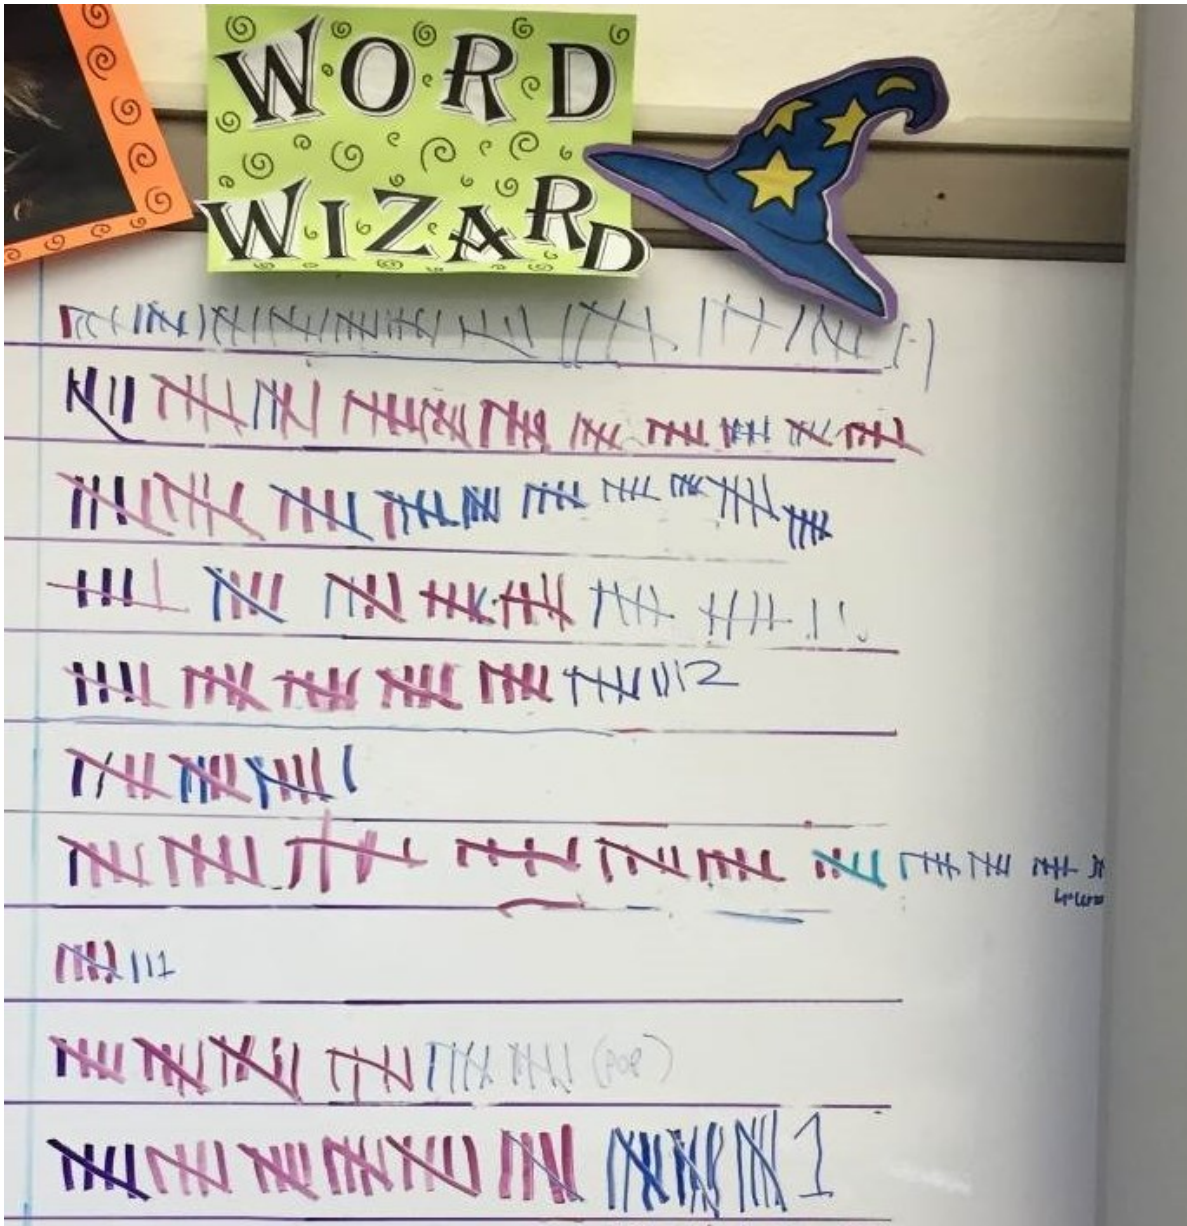 WORD
WIZARD
2
(POP)
1